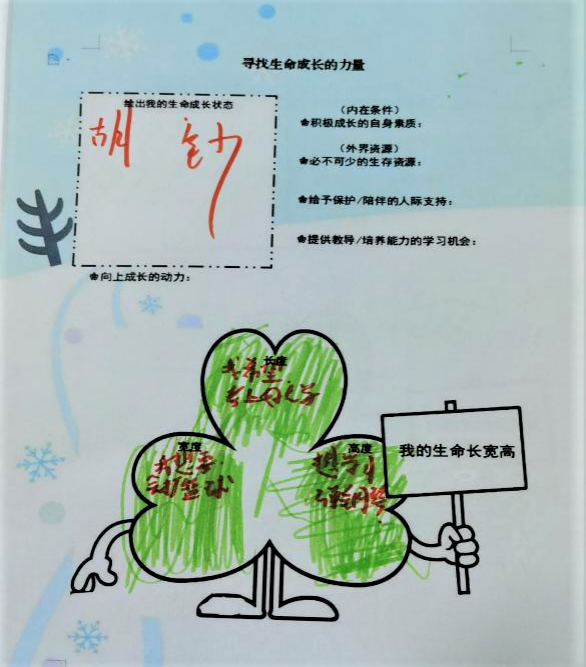 寻找生命成长的力量
绘出我的生命成长状态
胡 钞
(内在条件)
积极成长的自身素质:
(外界资源)
必不可少的生存资源:
给予保护/陪伴的人际支持:
提供教导/培养能力的学习机会:
向上成长的动力:
长度
我希望
考上大学
宽度
我想要
会打篮球
高度
想学习
弹钢琴
我的生命长宽高